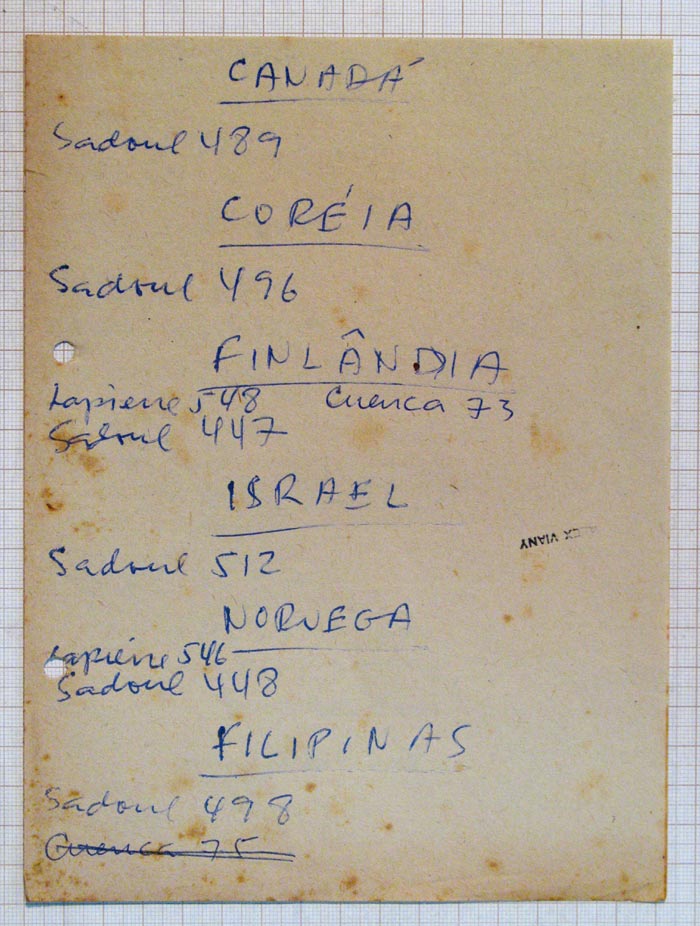 CANADÁ
Sadoul 489
CORÉIA
Sadoul 496
FINLÂNDIA
Lapierre 548 Cuenca 73
Sadoul 447
ISRAEL
ALEX VIANY
Sadoul 512
NORUEGA
Lapierre 546
Sadoul 448
FILIPINAS
Sadoul 498
Cuenca 75